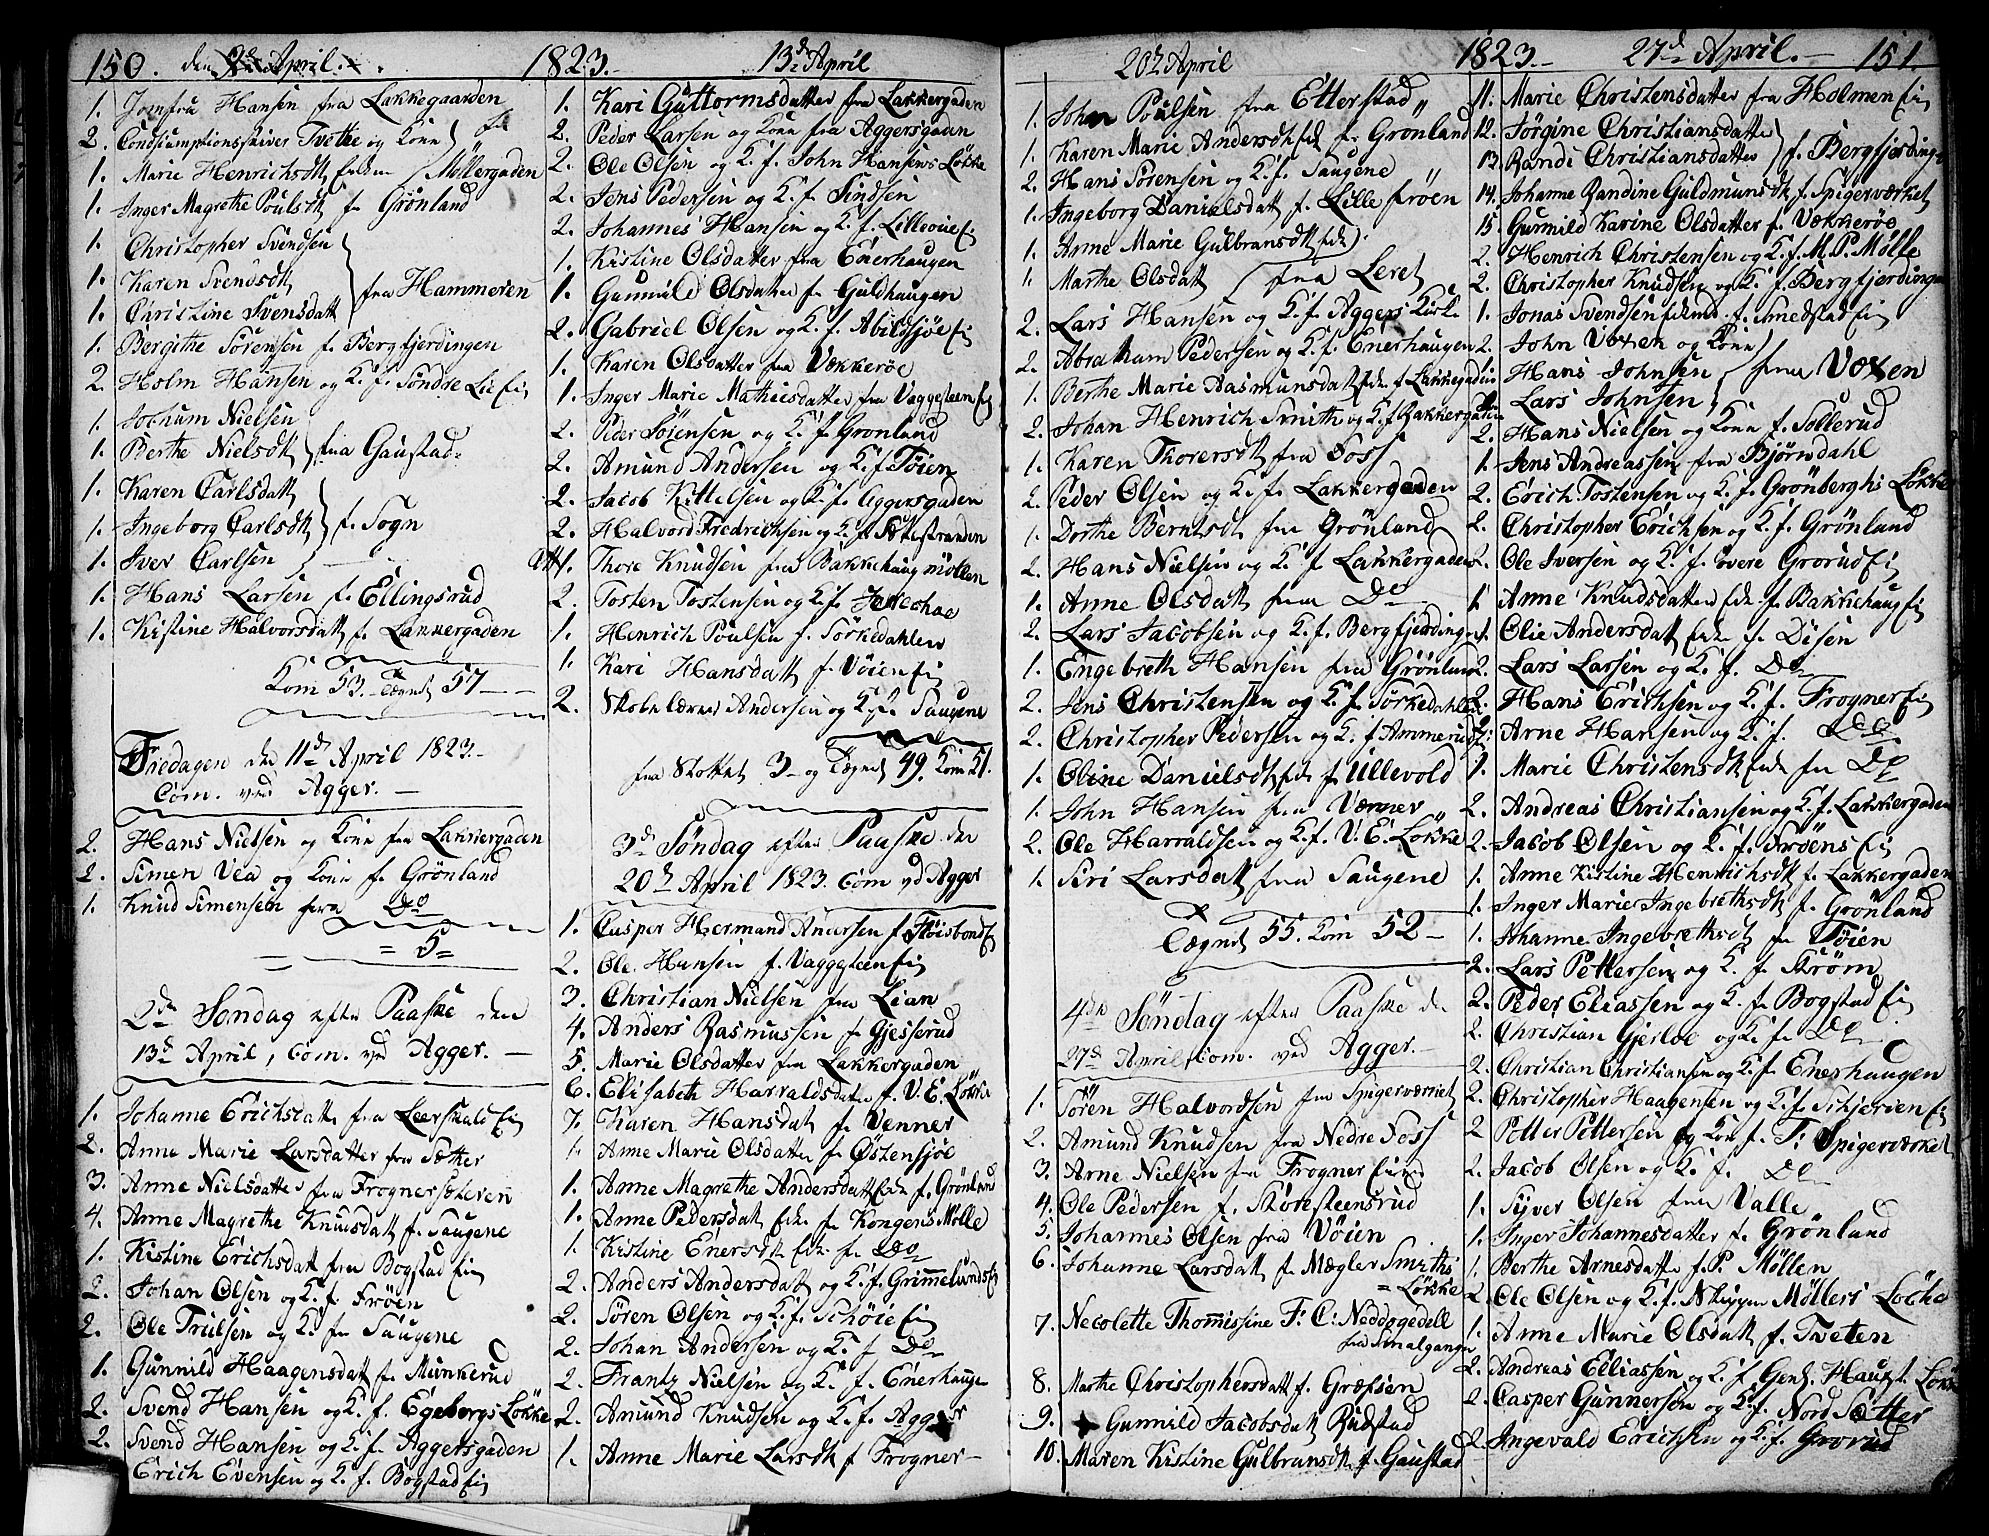 150. den April. 1823. 13d April
1. Jomfru Hansen fra Lakkegaarden
2. Consumptionsskriver Tvethe og Kone
1. Marie Henrichsdtr Møllergaden
1. Inger Magrethe Poulsdtr f. Grönland
1. Christopher Svendsen
1. Karen Svendsdtr fra Hammeren
1. Christine Svensdatt
1. Bergithe Sörensen f. Bergfjerdingen
2. Holm Hansen og K. f. Söndre Lie Ei
1. Jochum Nielsen
1. Berthe Nielsdtr fra Gaustad
1. Karen Carlsdatt
1. Ingeborg Carlsdtr f. Sogn
1. Iver Carlsen
1. Hans Larsen f. Ellingsrud
1. Kistine Halvorsdatt f. Lakkergaden
Kom 53 Tægnet 57
Fredagen den 11d April 1823.
Com. ved Agger.
2. Hans Nielsen og Kone fra Lakkergaden
2. Simen Vea og Kone f. Grönland
1. Knud Simensen fra Do
= 5 =
2d Søndag efter Paaske den
13d April, Com. ved Agger.
1. Johanne Erichsdatt fra Leerskald Ei
2. Anne Marie Larsdatter fra Sæther
3. Anne Nielsdatter fra Frognersæteren
4. Anne Magrethe Knudsdatt f. Saugene
1. Kistine Erichsdatt fra Bogstad Ei
2. Johan Olsen og K. f. Fröen
2. Ole Truelsen og K. fra Saugene
1. Gunnild Haagensdatt f. Munkerud
2. Svend Hansen og K. f. Egebergs Løkke
2. Svend Hansen og K. f. Aggersgaden
Erich Evensen og K. f. Bogstad Ei
1. Kari Guttormsdatter fra Lakkergaden
2. Peder Larsen og Kone fra Aggersgaden
2. Ole Olsen og K. f. John Hansens Løkke
2. Jens Pedersen og K. f. Sindsen
2. Johannes Hansen og K. f.
1. Kistine Olsdatter fra Enerhaugen
1. Gunnild Olsdatter f. Guldhaugen
2. Gabriel Olsen og K. f. Abildsjøe Ei
1. Karen Olsdatter fra Vækkerøe
1. Inger Marie Mathiesdatter fra Vaggesteen Ei
2. Peder Sörensen og K. f. Grønland
2. Amund Andersen og K. f. Töien
2. Jacob Kittelsen og K. f. Aggersgaden
2. Halvord Fredrichsen og K. f.
1. Thore Knudsen fra Bakkehaug møllen
2. Tosten Tostensen og K. f.
1. Henrich Poulsen f. Sörkedahlen
1. Kari Hansdatt f. Vöien Ei
2. Andersen og K. fra Saugene
fra Slottet 3 og Tægnet 49. Kom 51.
3d Søndag efter Paaske den
20d April 1823. Com vd Agger
1. Casper Hermand Andersen f.
2. Ole Hansen f. Vaggesteen Ei
3. Christian Nielsen fra Lian
4. Anders Rasmussen f. Gjesserud
5. Marie Olsdatter fra Lakkergaden
6. Elisabeth Harraldsdatter f. V. E. Løkke
7. Karen Hansdat f. Venner
1. Anne Marie Olsdatter f. Østensjøe
1. Anne Magrethe Andersdatt f. Grönland
1. Anne Pedersdatt f. Kongens Mölle
1. Kistine Enersdtr f. Do
2. Anders Andersdatt og K. f. Grimelunds Ei
2. Sören Olsen og K. f. Schöie Ei
2. Johan Andersen og K. f Do
2. Frantz Nielsen og K. f. Enerhauge
2. Amund Knudsen og K. f. Agger
1. Anne Marie Larsdtr f Frogner
20d April 1823. 27d April. 151.
1. Johan Poulsen fra Etterstad
1. Karen Marie Andersdtr f. Grönland
2. Hans Sörensen og K. f. Saugene
1. Ingeborg Danielsdatt f. Lille fröen
1. Anne Marie Gulbransdtr
1. Marthe Olsdatt fra Leret
2. Lars Hansen og K. f. Aggers Kirke
2. Abraham Pedersen og K. f. Enerhaugen
1. Berthe Marie Aasmunsdatt f. Lakkegaden
2. Johan Henrich Smith og K. f Rakkergaden
1. Karen Thorersdtr fra Foss
2. Peder Olsen og K. f. Lakkergaden
1. Dorthe Berntsdt fra Grönland
2. Hans Nielsen og K. f Lakkergaden
1. Anne Olsdatt fra Do
2. Lars Jacobsen og K. f. Bergfjerding
1. Engebreth Hansen fra Grönland
2. Jens Christensen og K. f Sörkedahlen
2. Christopher Pedersen og K. f Ammerud
1. Oline Danielsdtr f Ullevold
1. John Hansen fra Værner
2. Ole Harraldsen og K. f. V. E. Løkke
1. Siri Larsdatt fra Saugene
Tægnet 55. Kom 52
4de Søndag efter Paaske d.
27d April, Com. ved Agger.
1. Sören Halvordsen fra Spigerværket
2. Amund Knudsen fra Nedre Foss
3. Arne Nielsen fra Frogner Eie
4. Ole Pedersen f. Skorsteensrud
5. Johannes Olsen fra Vöien
6. Johanne Larsdatt f. Mægler Smiths
= Løkke
7. Necolette Thomissine F: C: Neddegedell
fra Smalgangen
8. Marthe Christophersdatt f. Græfsen
9. Gunnild Jacobsdatt Rudstad
10. Maren Kistine Gulbransdtr f. Gaustad
11. Marie Christensdatter fra Holmen Ei
12. Jörgine Christiansdatte
13. Randi Christiansdatter f. Bergfjerding
14. Johanne Randine Guldmunsdtr f. Spigerværket
15. Gunnild Karine Olsdatter f. Vækkeröe
2. Henrich Christensen og K. f. M. P. Mölle
2. Christopher Knudsen og K. f. Bergfjerdingen
1. Jonas Svendsen f. Smedstad Ei
2. John Voxen og Kone
Hans Johnsen fra Voxen
Lars Johnsen
2. Hans Nielsen og Kone f. Sollerud
1. Jens Andreassen fra Bjørndahl
2. Erich Tostensen og K. f. Grönberghs Løkke
2. Christopher Erichsen og K. f. Grönland
2. Ole Iversen og K. f. övere Grorud Ei
1 Anne Knudsdatter f. Bakkehaug Ei
1. Olie Andersdatt f. Disen
2. Lars Larsen og K. f. Do
2. Hans Erichsen og K. f. Frogner Ei
2. Arne Hansen og K. f. Do
1. Marie Christensdtr fra Do
2. Andreas Christiansen og K. f. Lakkergaden
2. Jacob Olsen og K. f. Fröens Ei
1. Anne Kistine Henrichsdtr f. Lakkergaden
1. Inger Marie Ingebrethsdtr f. Grönland
1. Johanne Ingebrethsdt fra Töien
2. Lars Pettersen og K. f. Ström
2. Peder Eliassen og K. f. Bogstad Ei
2. Christian Gjerløe og K. f. Do
2. Christian Christiansen og K. f. Enerhaugen
2. Christopher Haagensen og K. f. Schjerien Ei
2 Petter Pettersen og Kone f. T: Spigerværket
2. Jacob Olsen og K. f. Do
1. Syver Olsen fra Valle
1. Inger Johannesdatter f. Grönland
1. Berthe Arnesdatte f. P. Möllen
2. Ole Olsen og K. f. Skipper Möllers Løcke
1. Anne Marie Olsdatt f. Tveten
2. Andreas Elliassen og K. f Gen. Hauxt. Løk
2. Casper Gunnersen og K. f. Nord Sætter
2. Ingevald Erichsen og K. f. Grorud